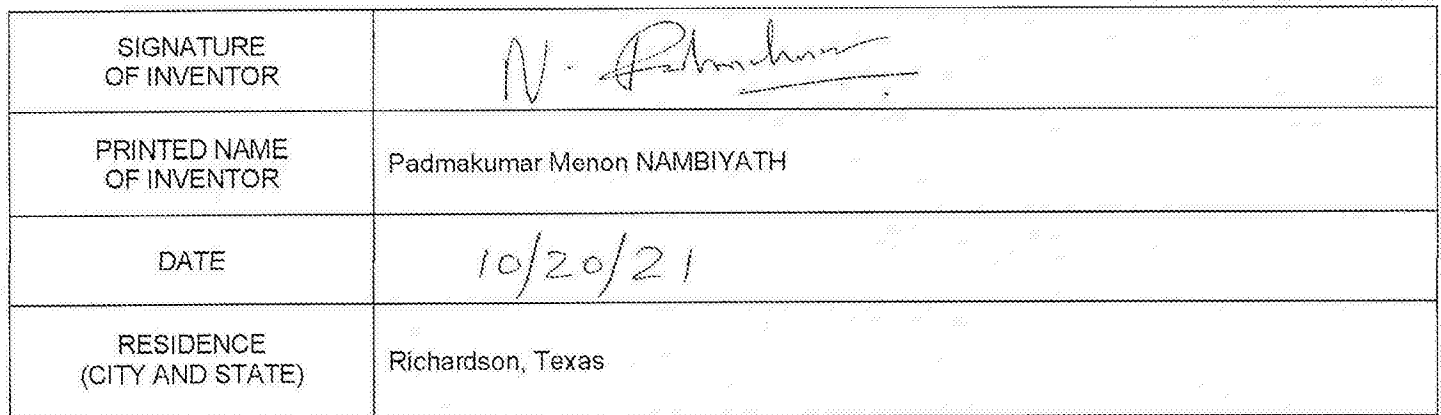 SIGNATURE
OF INVENTOR
N.
PRINTED NAME
OF INVENTOR
Padmakumar Menon NAMBIYATH
DATE
10/20/21
RESIDENCE
(CITY AND STATE)
Richardson, Texas